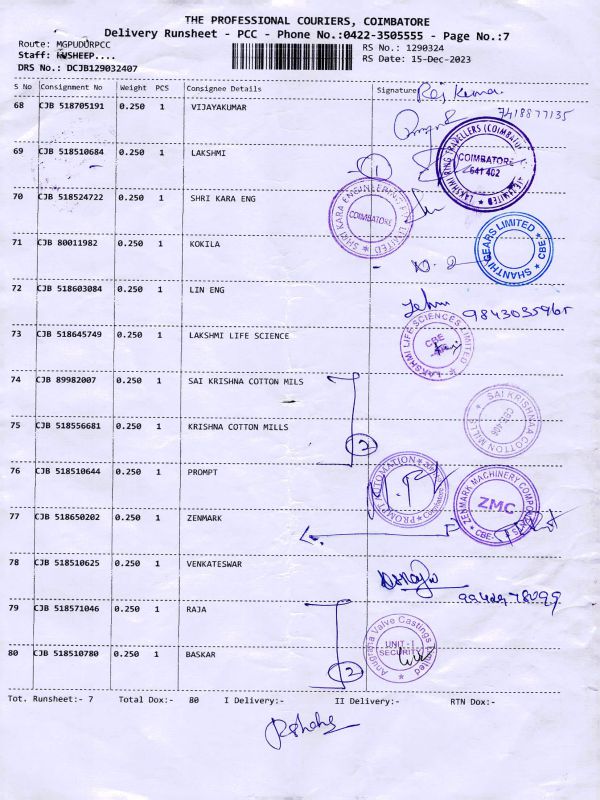 THE PROFESSIONAL COURIERS, COIMBATORE
Delivery Runsheet - PCC - Phone No.:0422-3505555 - Page No.:7
Route: MGPUDURPCC
RS No.: 1290324
Staff: KWSHEEP....
RS Date: 15-Dec-2023
DRS No.: DCJB129032407
S No Consignment No Weight PCS Consignee Details Signature
Raj Kumar
68 CJB 518705191 0.250 1 VIJAYAKUMAR
7418877135
69 CJB 518510684 0.250 1 LAKSHMI
LAKSHMI RING TRAVELLERS (COIMBATORE) LIMITED
COIMBATORE
641 402
70 CJB 518524722 0.250 1 SHRI KARA ENG
SHRI KARA ENGINEERING LIMITED
COIMBATORE
71 CJB 80011982 0.250 1 KOKILA
SHANTHI GEARS LIMITED CBE
72 CJB 518603084 0.250 1 LIN ENG
9843035965
73 CJB 518645749 0.250 1 LAKSHMI LIFE SCIENCE
LAKSHMI LIFE SCIENCES LIMITED
CBE
74 CJB 89982007 0.250 1 SAI KRISHNA COTTON MILS
SAI KRISHNAA COTTON MILLS
75 CJB 518556681 0.250 1 KRISHNA COTTON MILLS
2
76 CJB 518510644 0.250 1 PROMPT
PROMPT AUTOMATION
ZENMARK MACHINERY COMPONENTS CBE
ZMC
77 CJB 518650202 0.250 1 ZENMARK
78 CJB 518510625 0.250 1 VENKATESWAR
79 CJB 518571046 0.250 1 RAJA
Anugraha Valve Castings Limited
UNIT - I
SECURITY
80 CJB 518510780 0.250 1 BASKAR
2
Tot. Runsheet:- 7 Total Dox:- 80 I Delivery:- II Delivery:- RTN Dox:-